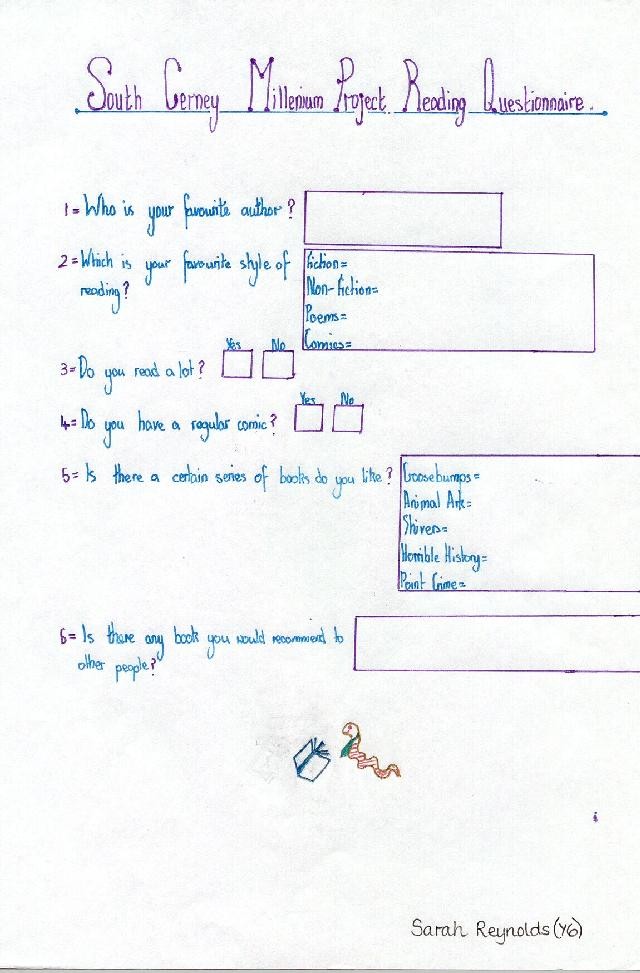 South Cerney Millenium Project Reading Questionnaire.
1= Who is your favourite author?
2= Which is your favourite style of
reading?
Fiction=
Non-Fiction=
Poems=
Comics=
Yes No
3= Do you read a lot?
Yes No
4= Do you have a regular comic?
5= Is there a certain series of books do you like?
Goosebumps=
Animal Ark=
Shivers=
Horrible History=
Point Crime=
6= Is there any book you would recommend to
other people?
Sarah Reynolds (Y6)